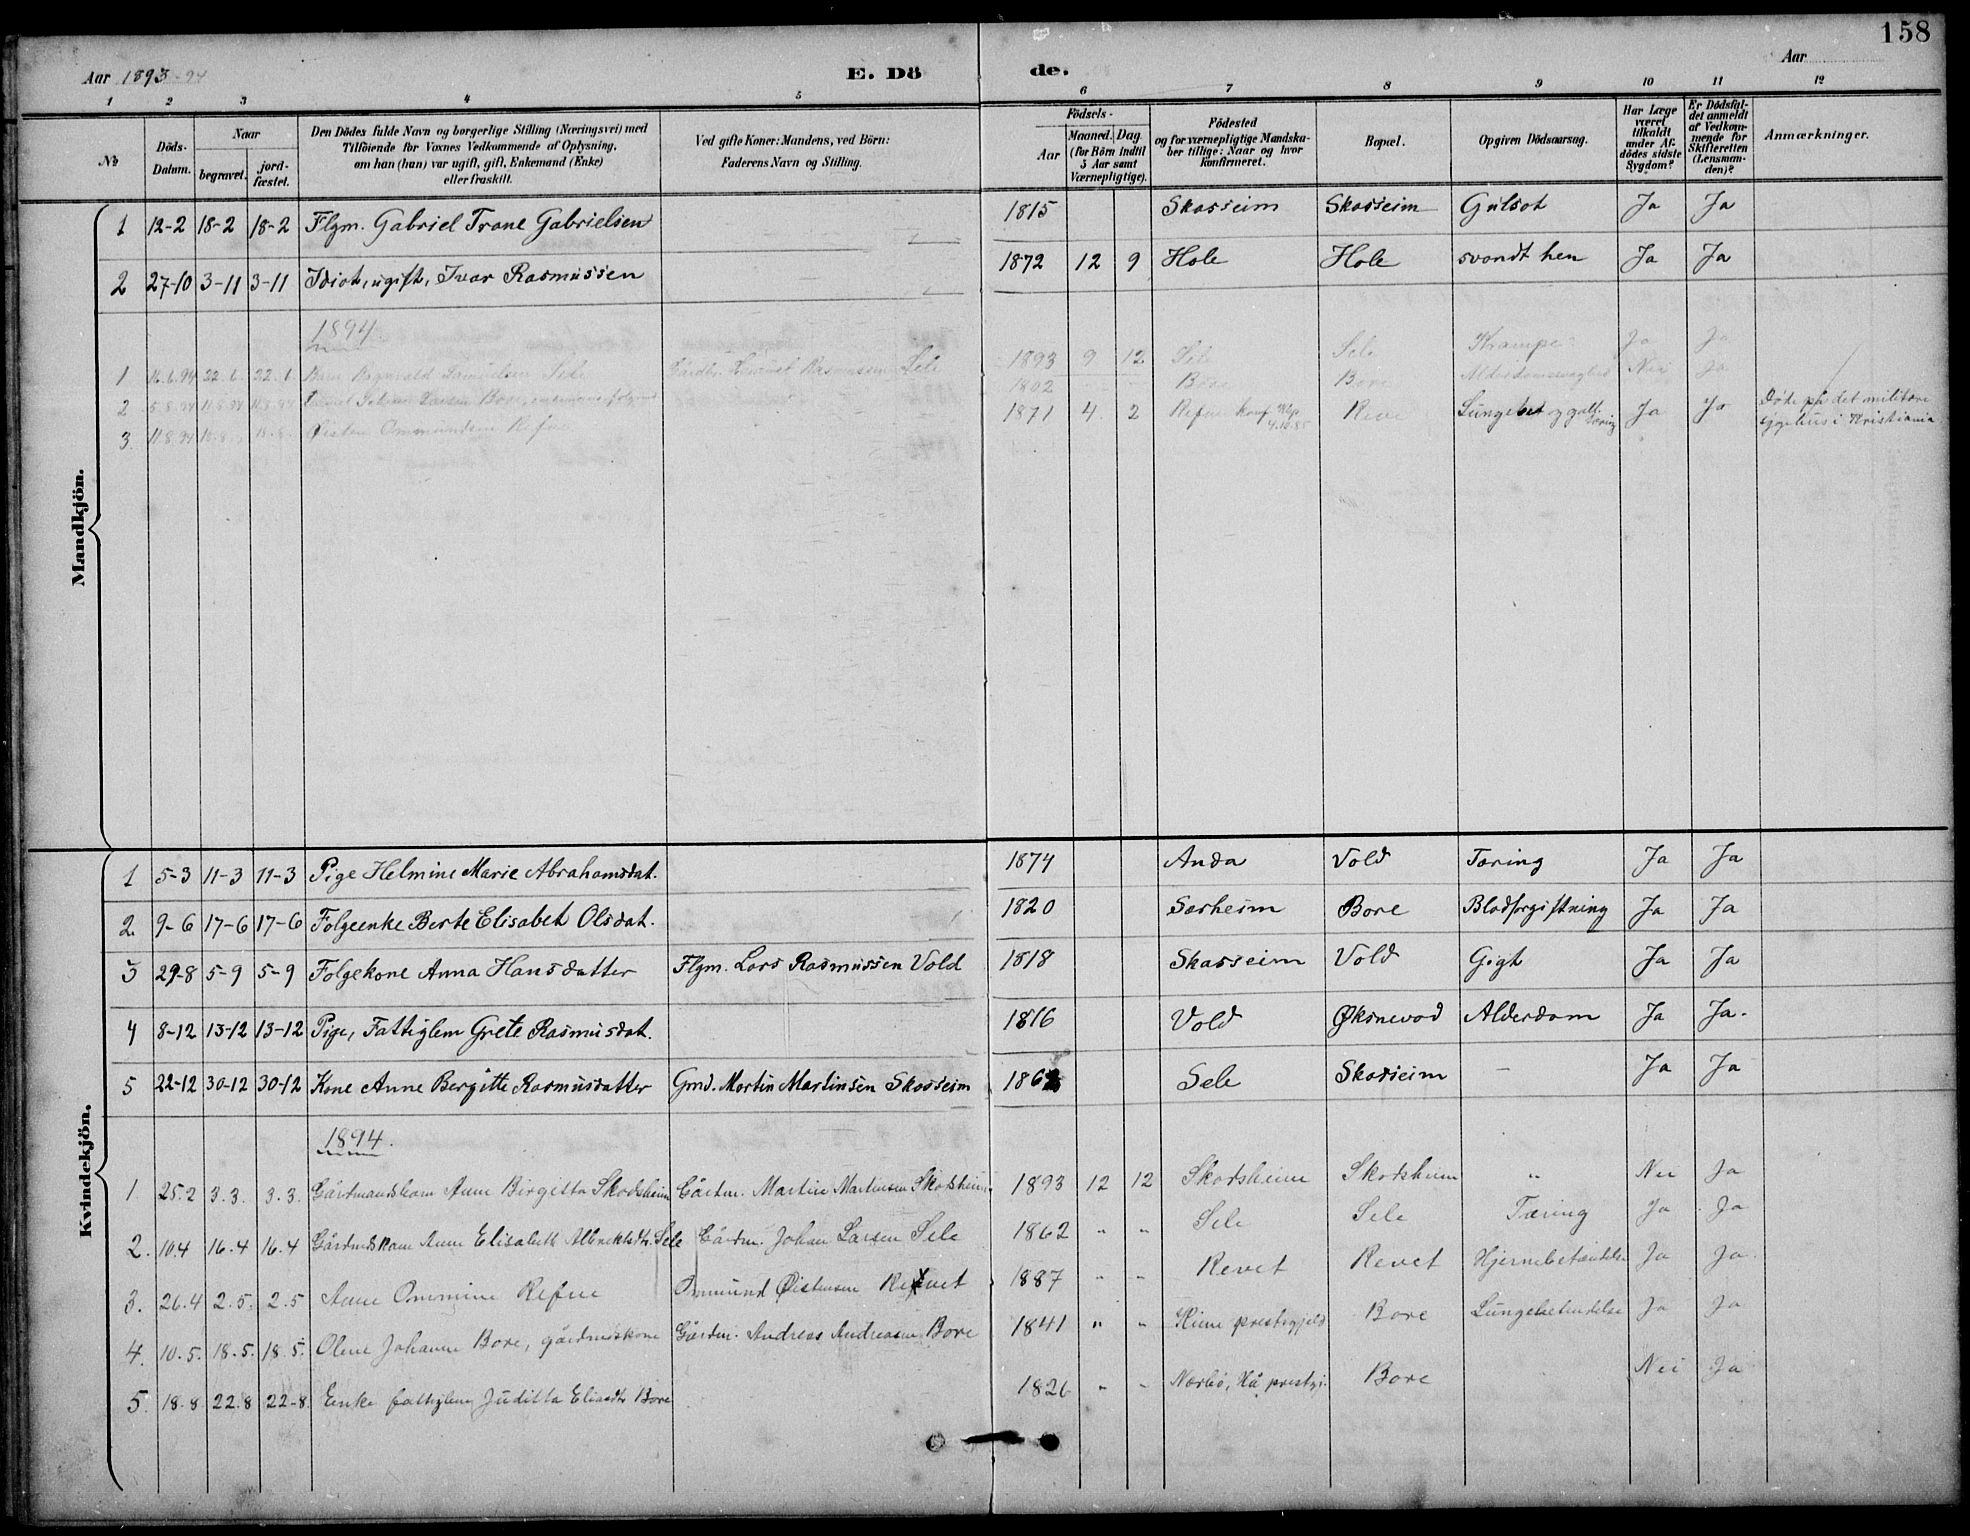 158
Aar 1893-94
E. Dö
de.
Aar
1 2 3 4 5 6 7 8 9 10 11 12
No
Döds-Datum.
Naar
begravet.
jord-fæstet.
Den Dödes fulde Navn og borgerlige Stilling (Næringsvei) med
Tilföiende for Voxnes Vedkommende af Oplysning,
om han (hun) var ugift, gift, Enkemand (Enke)
eller fraskilt.
Ved gifte Koner: Mandens, ved Börn:
Faderens Navn og Stilling.
Födsels-
Aar
Maaned. Dag.
(for Börn indtil
5 Aar samt
Værnepligtige).
Födested
og for værnepligtige Mandska-
ber tillige: Naar og hvor
konfirmeret.
Bopæl.
Opgiven Dödsaarsag.
Har Læge
været
tilkaldt
under Af-
dödes sidste
Sygdom?
Er Dödsfal-
det anmeldt
af Vedkom-
mende for
Skifteretten
(Lensman-
den)?
Anmærkninger.
Mandkjön.
1 12-2 18-2 18-2 Flgm. Gabriel Trane Gabrielsen 1815 Skasseim Skasseim Gulsot Ja Ja
2 27-10 3-11 3-11 Idiot, ugift, Ivar Rasmussen 1872 12 9 Hole Hole svandt hen Ja Ja
1894.
1 16.6.94 22.6. 22.6. Barn Samuelsen Sele Rasmussen Sele 1893 9 12 Sele Sele Krampe Ja Ja
2 5.8.94 11.8.94 11.8.94 Larsen Bore, 1802 Bore Bore Alderdomssvaghed Nei Ja
3. 11.8.94 Øisten Ommundsen Refve 1871 4. 2 Refve konf. 4.10.85 Reve Lungebet og galt. Tæring Ja Ja Døde på det militære
sygehus i Kristiania
Kvindekjön.
1 5-3 11-3 11-3 Pige Helmine Marie Abrahamsdat. 1874 Anda Vold Tæring Ja Ja
2. 9-6 17-6 17-6 Folgeenke Berte Elisabet Olsdat. 1820 Særheim Bore Blodforgiftning Ja Ja
3 29-8 5-9 5-9 Folgekone Anna Hansdatter Flgm. Lars Rasmussen Vold 1818 Skasseim Vold Gigt Ja Ja
4 8-12 13-12 13-12 Pige, Fattiglem Grete Rasmusdat. 1816 Vold Øksnevad Alderdom Ja Ja.
5 22-12 30-12 30-12 Kone Anne Bergitte Rasmusdatter Gmd. Martin Martinsen Skasseim Sele Skasseim — Ja Ja
1894.
1. 25.2 3.3. 3.3. Gårdmandsbarn Anne Birgitta Skadsheim Gårdm. Martin Martinsen Skadsheim 1893 12 12 Skadsheim Skadsheim " Nei Ja
2. 10.4 16.4 16.4 Gårdmdskone Anne Elisabeth Albrektsdtr. Sele Gårdm. Johan Larsen Sele 1862 " " Sele Sele Tæring Ja Ja
3. 26.4 2.5. 2.5 Anne Ommine Refve Ommund Øistensen Revet 1887 " " Revet Revet Hjernebetændelse Ja Ja
4. 10.5. 18.5. 18.5. Oline Johanne Bore, gårdmdskone Gårdm. Andreas Andreasen Bore 1841 " " Time prestegjeld Bore Lungebetendelse Ja Ja
5. 18.8 22.8 22-8. Enke fattiglem Juditta Eliasdtr Bore 1826 " " Nærbø, Hå prestgj. Bore Nei Ja